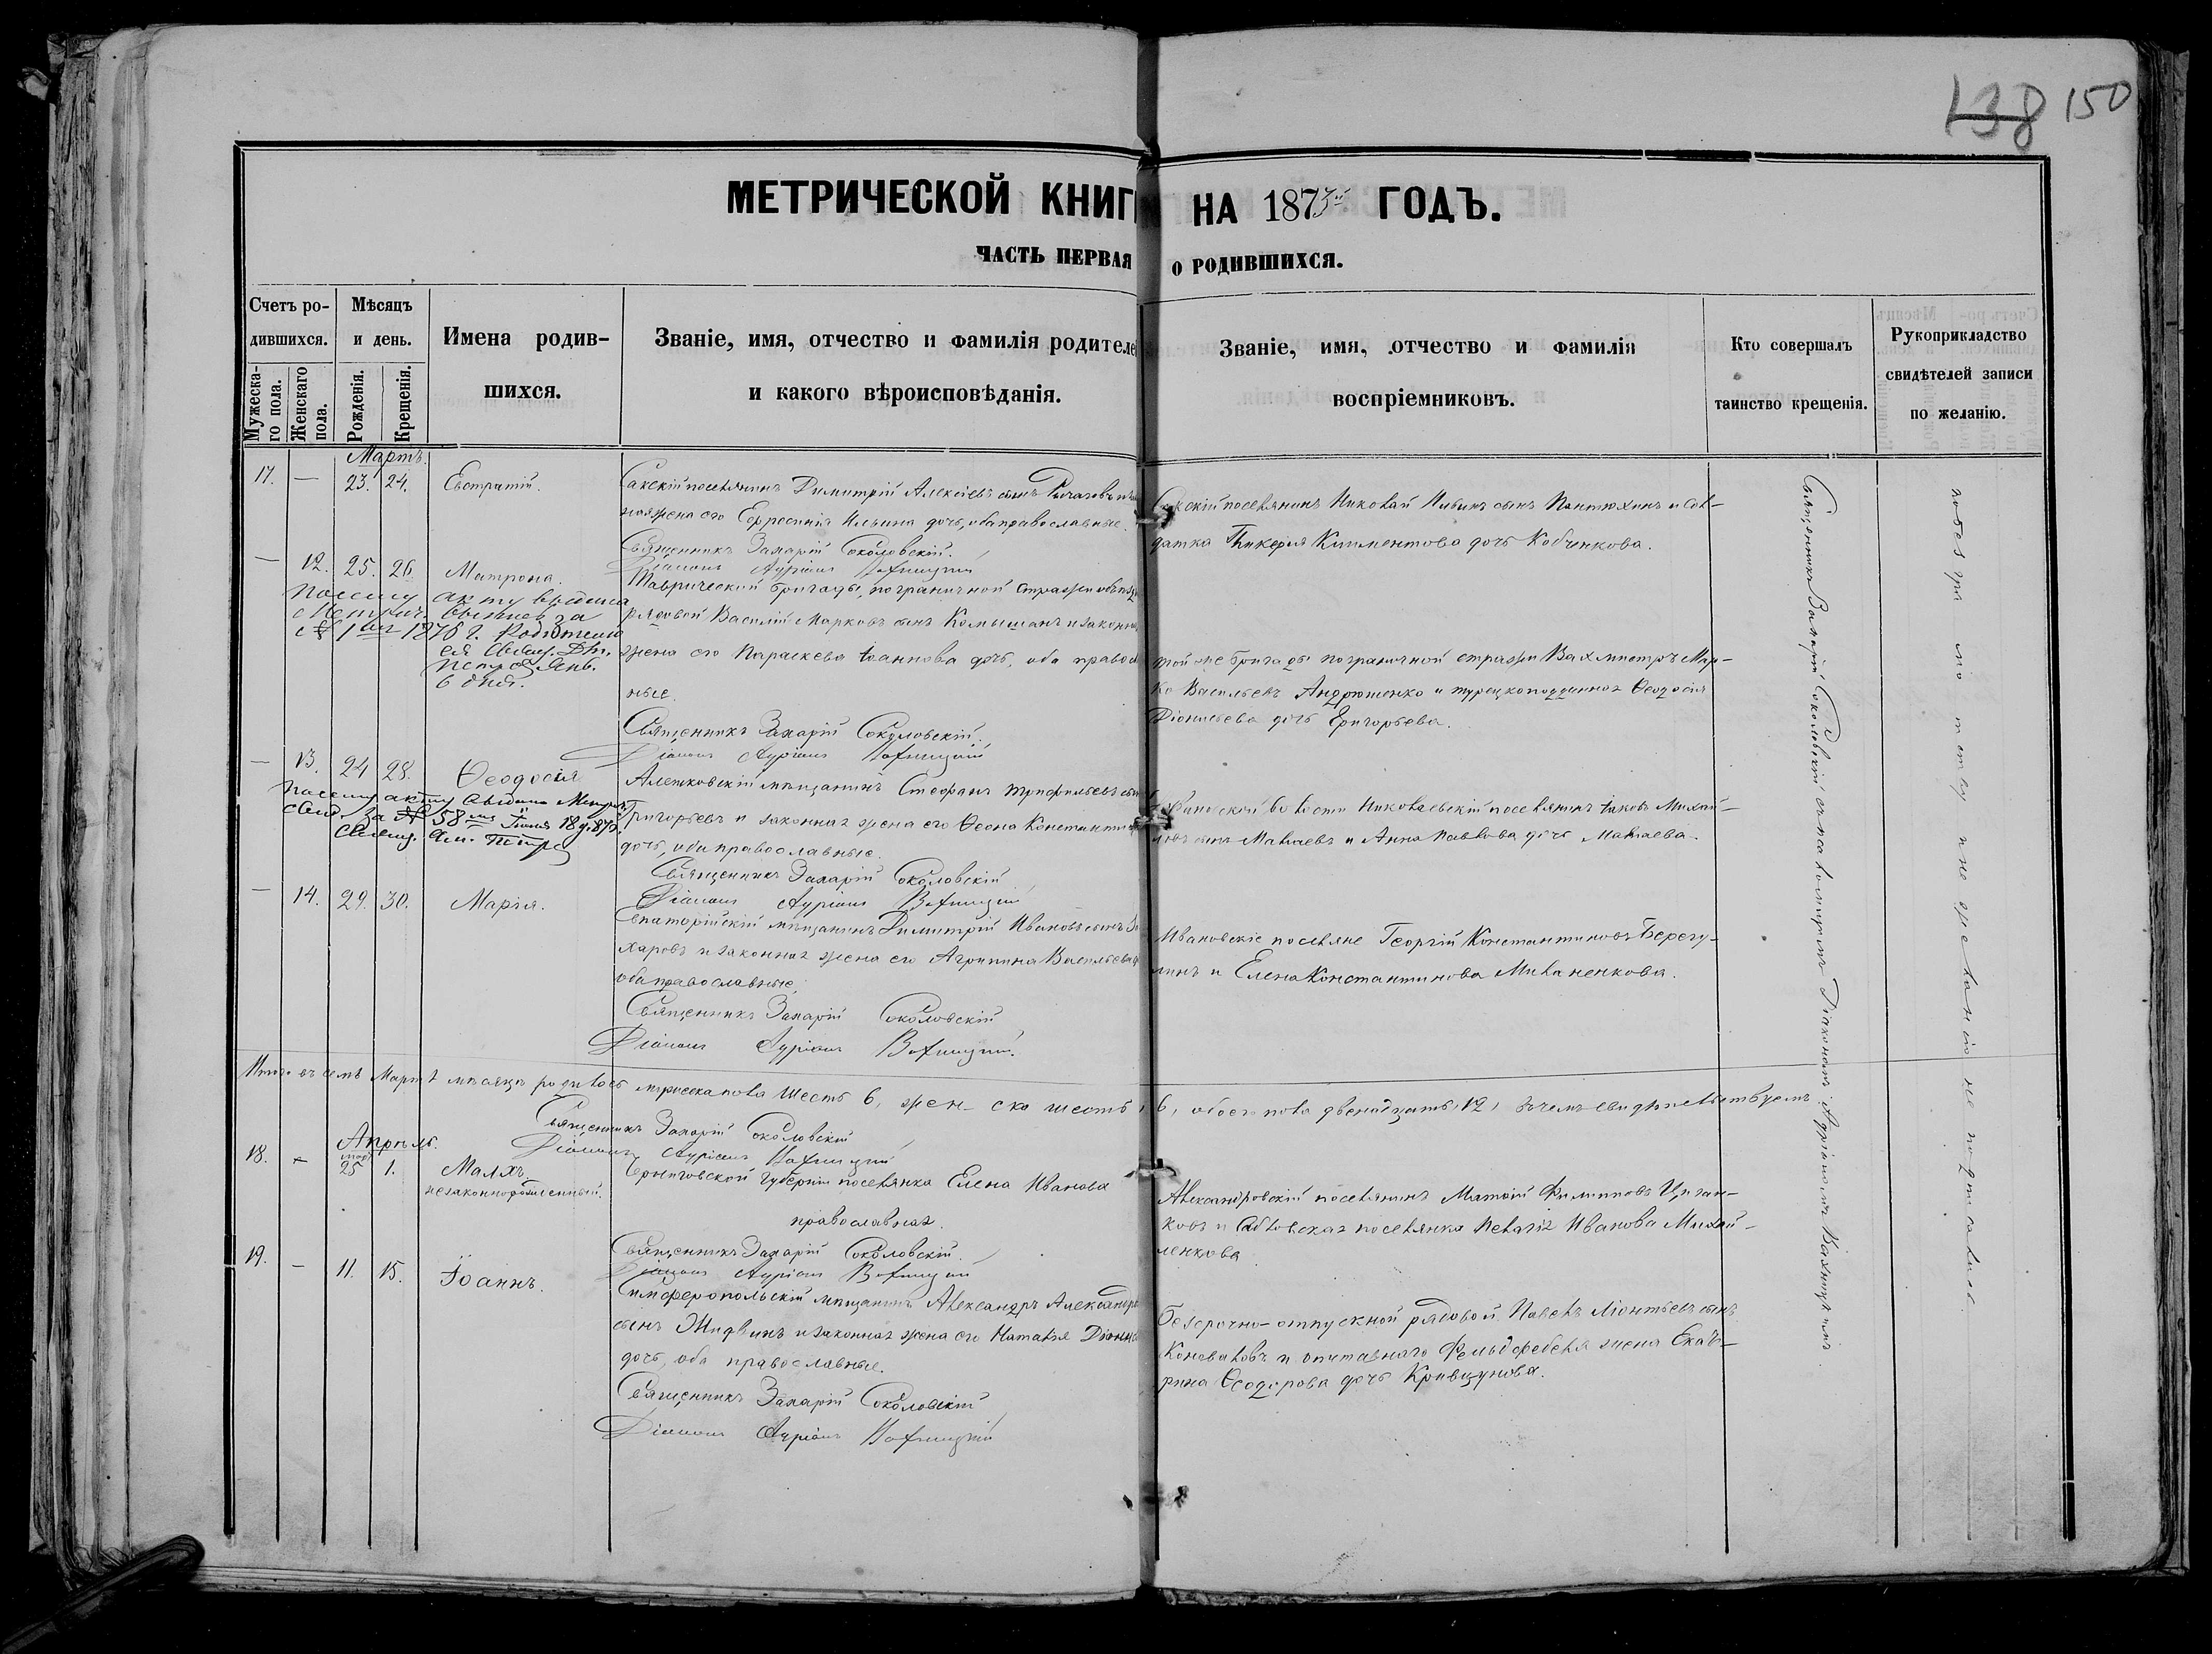 138 150
МЕТРИЧЕСКОЙ КНИГ НА 1873й ГОДЪ.
ЧАСТЬ ПЕРВАЯ О РОДИВШИХСЯ.
Счетъ ро-
дившихся.
Мужеска-
го пола.
Женскаго
пола.
Мѣсяцъ
и день.
Рожденія.
Крещенія.
Имена родив-
шихся.
Званіе, имя, отчество и фамилія родителе
и какого вѣроисповѣданія.
Званіе, имя, отчество и фамилія
воспріемниковъ.
Кто совершалъ
таинство крещенія.
Рукоприкладство
свидѣтелей записи
по желанію.
Мартъ.
17. — 23. 24. Евстратій.
Сакскій поселянинъ Димитрій Алексѣевъ сынъ
жена его Ефросинія Ильина дочь, оба православные.
Священникъ Захарій Соколовскій.
Діаконъ Адріанъ
Сакскій поселянинъ Николай Ильинъ сынъ Пантюхинъ и сол-
датка Гликерія Климентова дочь Кобченкова.
— 12. 25. 26. Матрона.
По сему акту выдана
Метрич. свид. за
№ 1 1876 г.
6 дня.
Таврической бригады, пограничной стражи объѣзд
рядовой Василій Марковъ сынъ Камышанъ и законн
жена его Параскева Іоаннова дочь, оба правосл
ные.
Священникъ Захарій Соколовскій.
Діаконъ Адріанъ
той же бригады пограничной стражи Вахмистръ Мар-
ко Васильевъ Андрюшенко и турецкоподданная Ѳеодосія
Діонисьева дочь Григорьева.
— 13. 24 28. Ѳеодосія
По сему акту выдано Метрич.
свид. за № 58
Свящ. Петр
Алешковскій мѣщанинъ Стефанъ Трифильевъ сын
Григорьевъ и законная жена его Ѳеона Константи
дочь, оба православные.
Священникъ Захарій Соколовскій
Діаконъ Адріанъ
волости Николаевскій поселянинъ Іаковъ Михай-
ловъ сынъ Малаевъ и Анна Павлова дочь Малаева.
— 14. 29. 30. Марія.
Евпаторійскій мѣщанинъ Димитрій Ивановъ сынъ За
харовъ и законная жена его Агрипина Васильева
оба православные.
Священникъ Захарій Соколовскій
Діаконъ Адріанъ
Ивановскіе поселяне Георгій Константиновъ Берегу-
линъ и Елена Константинова Миланенкова.
Итого въ семъ Мартѣ мѣсяцѣ родилось мужеска пола шесть 6, жен-ска шесть 6, обоего пола двенадцать, 12, въ чемъ свидѣтельствуемъ
Священникъ Захарій Соколовскій
Діаконъ Адріанъ
Апрѣль.
18. — март 25 1. Малхъ
незаконнорожденный.
Черниговской губерніи поселянка Елена Иванова
православная.
Священникъ Захарій Соколовскій.
Діаконъ Адріанъ
Александровскій поселянинъ Матѳій Филиповъ Циган-
ковъ и поселянка Пелагія Иванова Михай-
ленкова
19. — 11. 15. Іоаннъ.
Симферопольскій мѣщанинъ Александръ Александр
сынъ Жидвинъ и законная жена его Наталія Діонис
дочь, оба православные.
Священникъ Захарій Соколовскій
Діаконъ Адріанъ
Безсрочно-отпускной рядовой Павелъ Ліонтьевъ сынъ
Коноваловъ и опитавнаго Фельдфебеля жена Екате-
рина Ѳеодорова дочь Кривцунова.
Священникъ Захарій Соколовскій съ псаломщикомъ Діакономъ Адріаномъ